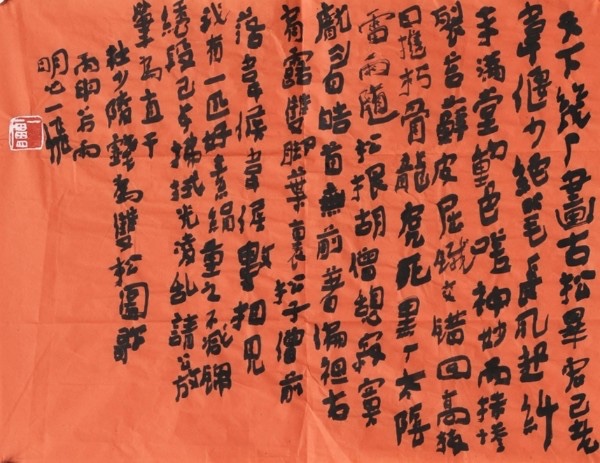 天下幾人畫古松畢宏已老
韋偃少絕筆長風起纖
末滿堂動色嗟神妙兩株慘
裂苔蘚皮屈鐵交錯回高枝
白摧朽骨龍虎死黑入太陰
雷雨隨松根胡僧憩寂寞
眉皓首無前著偏袒右
肩露雙脚葉裏松子僧前
落韋侯韋侯數相見
我有一匹好素絹重之不減錦
繡段已令拂拭光凌亂請公放
筆為直干
杜少陵戲為雙松圖歌